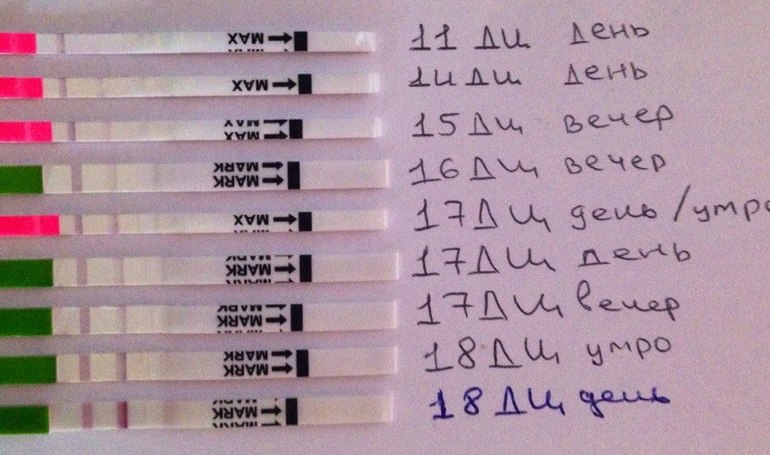 MAX 11 ДЦ День
MAX 14 ДЦ День
MAX MAX 15 ДЦ Вечер
MARK MARK 16 ДЦ Вечер
MAX 17 ДЦ день/утро
MARK MARK 17 ДЦ День
MARK MARK 17 ДЦ Вечер
MARK MARK 18 ДЦ утро
MARK MARK 18 ДЦ день